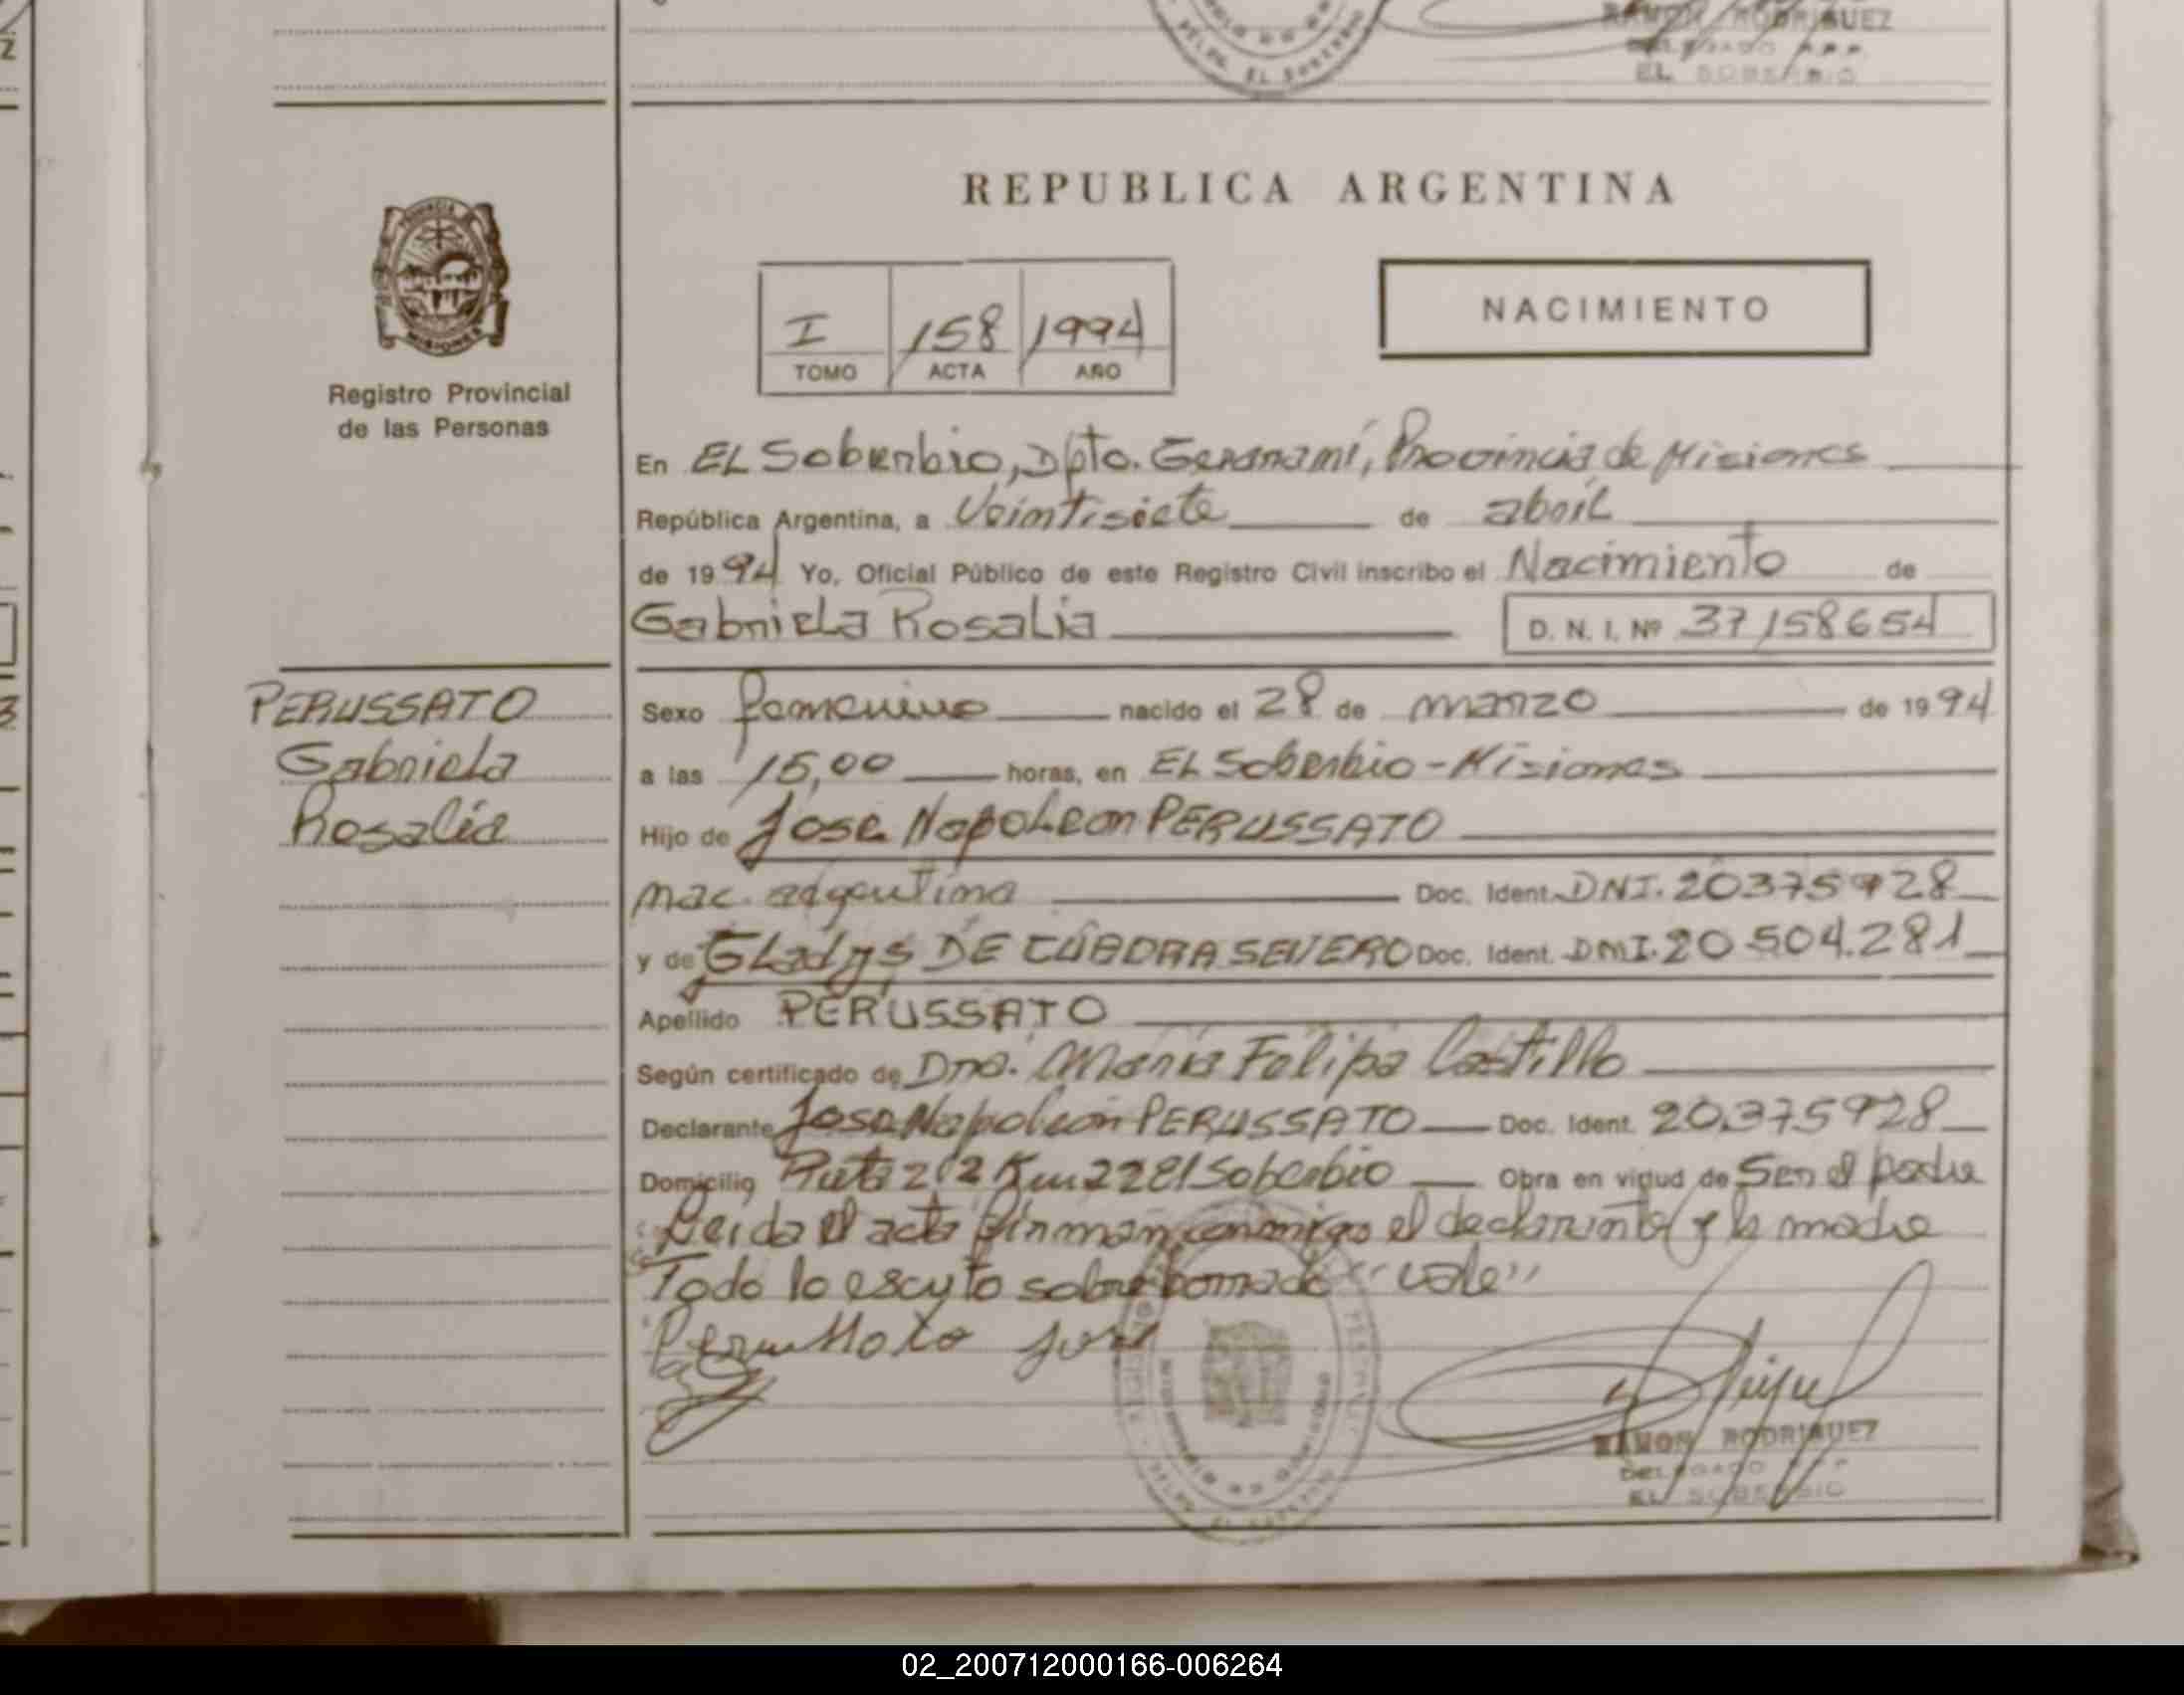 RAMON RODRIGUEZ
EL SOBERBIO
REPUBLICA ARGENTINA
I 158 1994
TOMO ACTA AÑO
NACIMIENTO
MISIONES
Registro Provincial
de las Personas
En EL Soberbio, Dpto. Guaraní, Provincia de Misiones
República Argentina, a Veintisiete de abril
de 1994 Yo, Oficial Público de este Registro Civil inscribo el Nacimiento de
Gabriela Rosalia D. N. I. Nº 37158654
PERUSSATO
Gabriela
Rosalia
Sexo femenino nacido el 28 de marzo de 1994
a las 15,00 horas, en EL Soberbio - Misiones
Hijo de Jose Napoleon PERUSSATO
nac. argentina Doc. Ident. DNI. 20375928
y de Gladys DE CUADRA SEVERO Doc. Ident. DNI. 20504.281
Apellido PERUSSATO
Según certificado de Dra. Maria Felipa Castillo
Declarante Jose Napoleon PERUSSATO Doc. Ident. 20.375928
Domicilio Ruta 212 Km 22 El Soberbio Obra en virtud de Ser el padre
Leida el acta firman conmigo el declarante y la madre
Todo lo escrito sobre borrado "vale"
Perussato José
RAMON RODRIGUEZ
DELEGADO
EL SOBERBIO
02_200712000166-006264